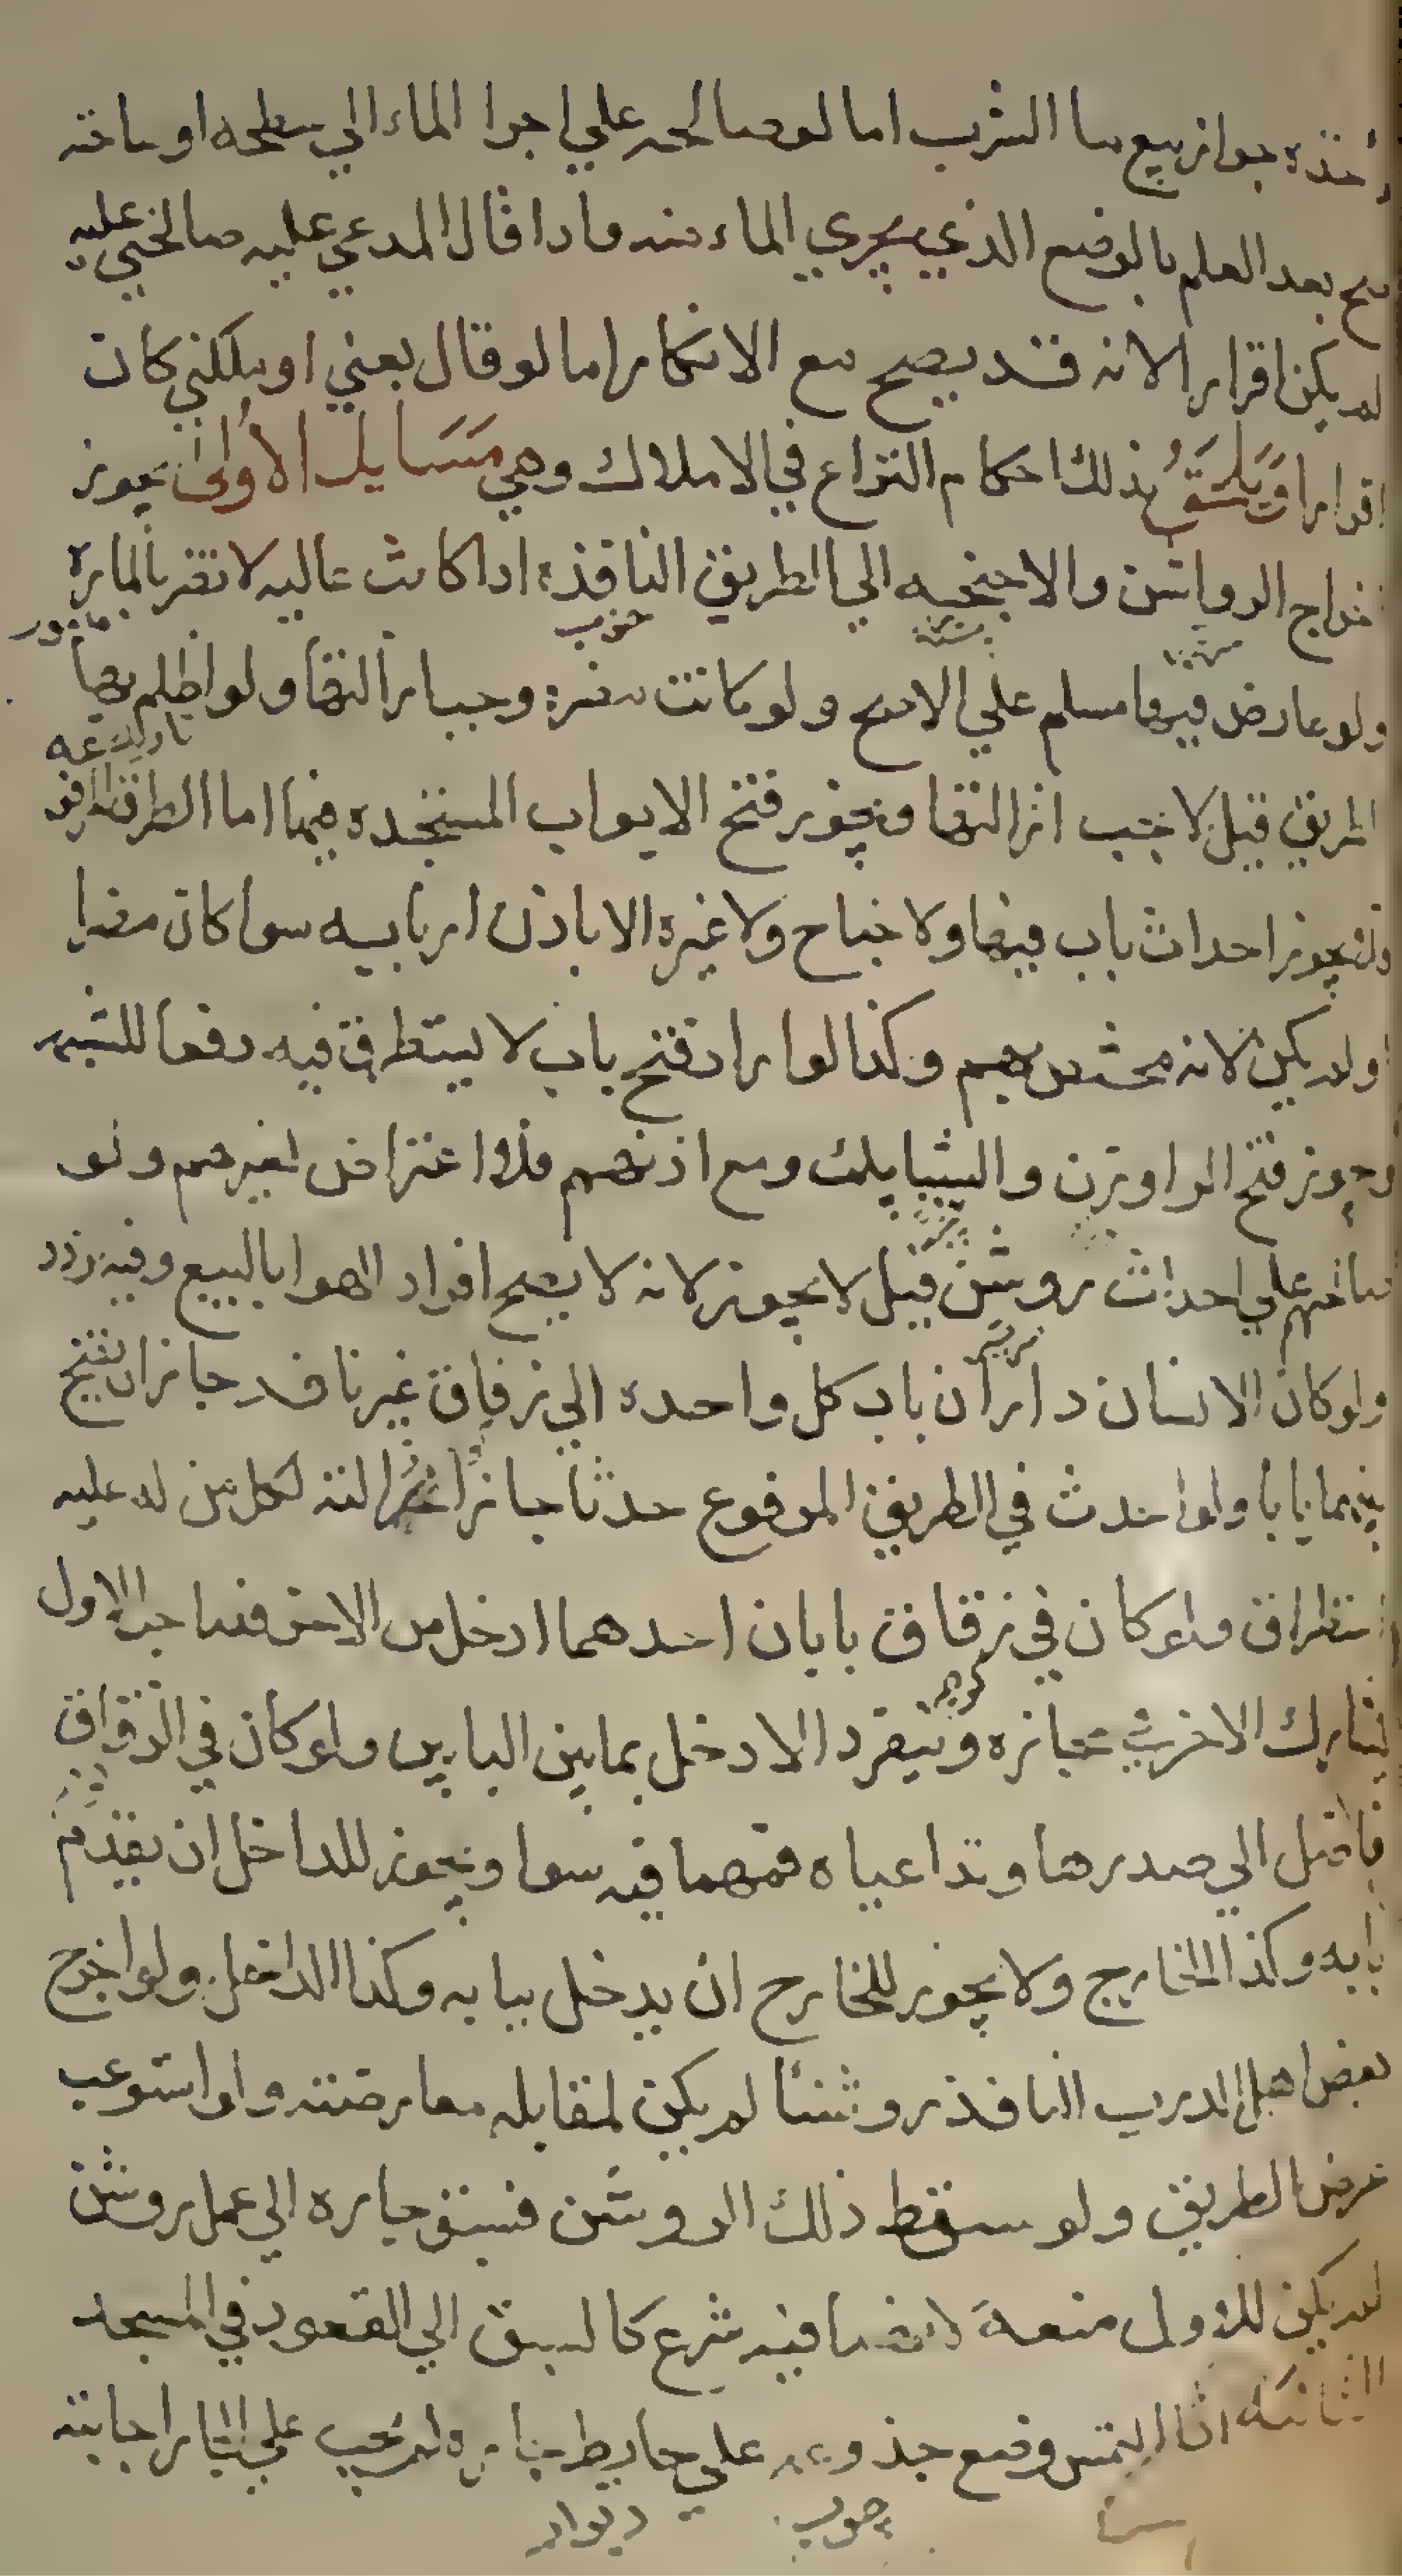 اخذه جواز بيع ما الشرب اما لو صالحه علي اجرا الماء الي سطحه او ساحته
صح بعد العلم بالموضع الذي يجري الماء منه واذا قال المدعي عليه صالحني عليه
لم يكن اقرارا لانه قد يصح مع الانكار اما لو قال بعني او ملكني كان
اقرارا ويلحق بذلك احكام النزاع في الاملاك وهي مسايل الاولى يجوز
اخراج الرواشن والاجنحه الي الطريق النافذه اذا كانت عاليه لا تضر بالماره
ولو عارض فيها مسلم علي الاصح ولو كانت مضره وجب ازالتها ولو اظلم بها
الطريق قيل لا يجب ازالتها ويجوز فتح الابواب المستجده فيها اما الطرق المرفوعه
فلا يجوز احداث باب فيها ولا جناح ولا غيره الا باذن اربابه سوا كان مضرا
او لم يكن لانه مختص بهم وكذا لو اراد فتح باب لا يستطرق فيه دفعا للشبهه
ويجوز فتح الروازن والشبابيك ومع اذنهم فلا اعتراض لغيرهم ولو
صالحهم علي احداث روشن قيل لا يجوز لانه لا يصح افراد الهوا بالبيع وفيه تردد
ولو كان لانسان داران باب كل واحده الي زقاق غير نافذ جاز ان يفتح
بينهما بابا ولو احدث في الطريق المرفوع حدثا جاز ازالته لكل من له عليه
استطراق ولو كان في زقاق بابان احدهما ادخل من الاخر فصاحب الاول
يشارك الاخر في مجازه وينفرد الادخل بما بين البابين ولو كان في الزقاق
فاضل الي صدرها وتداعياه فهما فيه سوا ويجوز للداخل ان يقدم
بابه وكذا الخارج ولا يجوز للخارج ان يدخل ببابه وكذا الداخل ولو اخرج
بعض اهل الدرب النافذ روشنا لم يكن لمقابله معارضته ولو استوعب
عرض الطريق ولو سقط ذلك الروشن فسبق جاره الي عمل روشن
لم يكن للاول منعه لانهما فيه شرع كالسبق الي القعود في المسجد
الثانيه اذا التمس وضع جذوعه علي حايط جاره لم يجب علي الجار اجابته
چوب ديوار